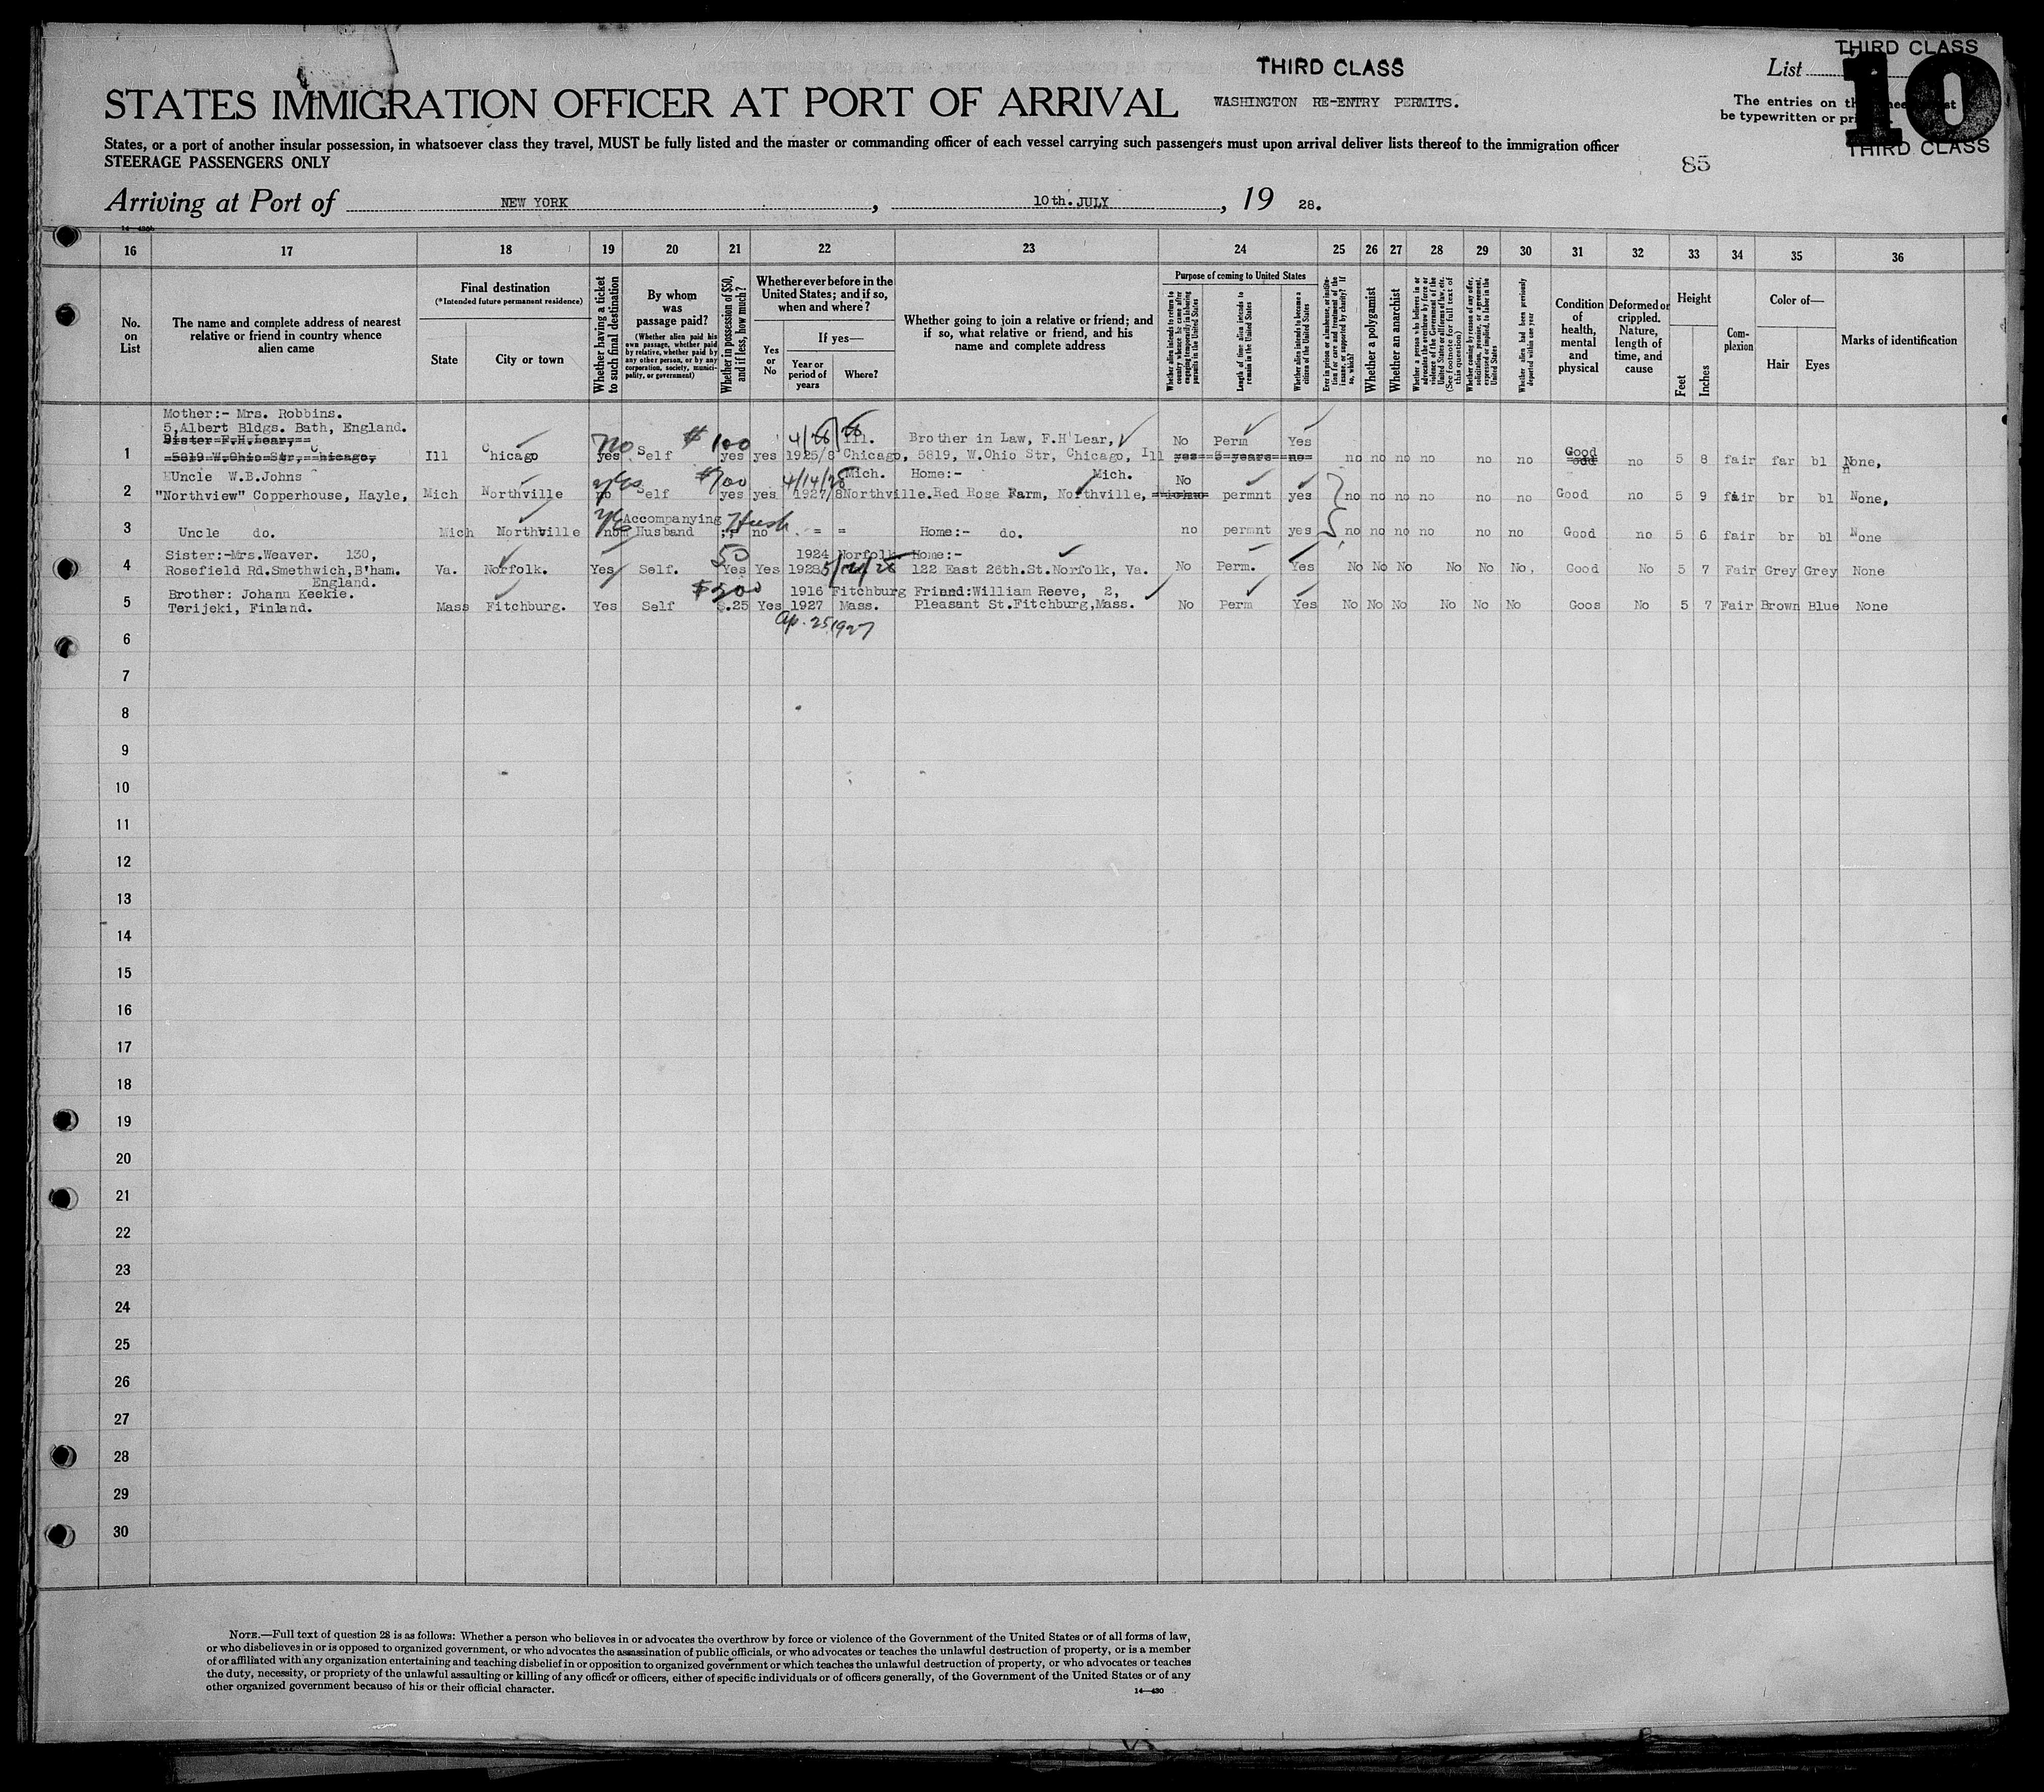 THIRD CLASS
THIRD CLASS
List
10
STATES IMMIGRATION OFFICER AT PORT OF ARRIVAL
WASHINGTON RE-ENTRY PERMITS.
The entries on
be typewritten or
States, or a port of another insular possession, in whatsoever class they travel, MUST be fully listed and the master or commanding officer of each vessel carrying such passengers must upon arrival deliver lists thereof to the immigration officer
THIRD CLASS
STEERAGE PASSENGERS ONLY
85
Arriving at Port of NEW YORK, 10th. JULY, 19 28.
16 17 18 19 20 21 22 23 24 25 26 27 28 29 30 31 32 33 34 35 36
No. on List
The name and complete address of nearest relative or friend in country whence alien came
Final destination
(*Intended future permanent residence)
State
City or town
Whether having a ticket to such final destination
By whom was passage paid?
(Whether alien paid his own passage, whether paid by relative, whether paid by any other person, or by any corporation, society, municipality, or government)
Whether in possession of $50, and if less, how much?
Whether ever before in the United States; and if so, when and where?
Yes or No
If yes—
Year or period of years
Where?
Whether going to join a relative or friend; and if so, what relative or friend, and his name and complete address
Purpose of coming to United States
Whether alien intends to return to country whence he came after engaging temporarily in laboring pursuits in the United States
Length of time alien intends to remain in the United States
Whether alien intends to become a citizen of the United States
Ever in prison or almshouse, or institution for care and treatment of the insane, or supported by charity? If so, which?
Whether a polygamist
Whether an anarchist
Whether a person who believes in or advocates the overthrow by force or violence of the Government of the United States or all forms of law, etc. (See footnote for full text of this question)
Whether coming by reason of any offer, solicitation, promise, or agreement, expressed or implied, to labor in the United States
Whether alien had been previously deported within one year
Condition of health, mental and physical
Deformed or crippled. Nature, length of time, and cause
Height
Feet
Inches
Complexion
Color of—
Hair
Eyes
Marks of identification
Mother:- Mrs. Robbins.
5,Albert Bldgs. Bath, England.
Sister F.H.Lear,
1 5819 W.Ohio Str, Chicago, Ill Chicago no yes Self $100 yes yes 4/28/28 1925/8 Ill. Chicago, Brother in Law, F.H Lear, 5819, W.Ohio Str, Chicago, Ill No Perm Yes yes 5 years no no no no no no no Good no 5 8 fair far bl None,
Uncle W.B.Johns
2 "Northview" Copperhouse, Hayle, Mich Northville yes no Self $100 yes yes 4/14/28 1927/8 Mich. Northville. Home:- Red Rose Farm, Northville, Mich. No permnt yes no no no no no no Good no 5 9 fair br bl None,
3 Uncle do. Mich Northville yes no Accompanying Husband Husb no = = Home:- do. no permnt yes no no no no no no Good no 5 6 fair br bl None
Sister:-Mrs.Weaver. 130,
4 Rosefield Rd.Smethwich,B'ham. England. Va. Norfolk. Yes Self. 50 Yes Yes 1924 1928 Norfolk Home:- 122 East 26th.St.Norfolk, Va. No Perm. Yes No No No No No No. Good No 5 7 Fair Grey Grey None
Brother: Johanu Keekie.
5 Terijeki, Finland. Mass Fitchburg. Yes Self $200 $.25 Yes 1916 1927 Fitchburg Mass. Friend:William Reeve, 2, Pleasant St.Fitchburg,Mass. No Perm Yes No No No No No No Goos No 5 7 Fair Brown Blue None
Ap. 25, 1927
6
7
8
9
10
11
12
13
14
15
16
17
18
19
20
21
22
23
24
25
26
27
28
29
30
NOTE.—Full text of question 28 is as follows: Whether a person who believes in or advocates the overthrow by force or violence of the Government of the United States or of all forms of law,
or who disbelieves in or is opposed to organized government, or who advocates the assassination of public officials, or who advocates or teaches the unlawful destruction of property, or is a member
of or affiliated with any organization entertaining and teaching disbelief in or opposition to organized government or which teaches the unlawful destruction of property, or who advocates or teaches
the duty, necessity, or propriety of the unlawful assaulting or killing of any officer or officers, either of specific individuals or of officers generally, of the Government of the United States or of any
other organized government because of his or their official character.
14—430